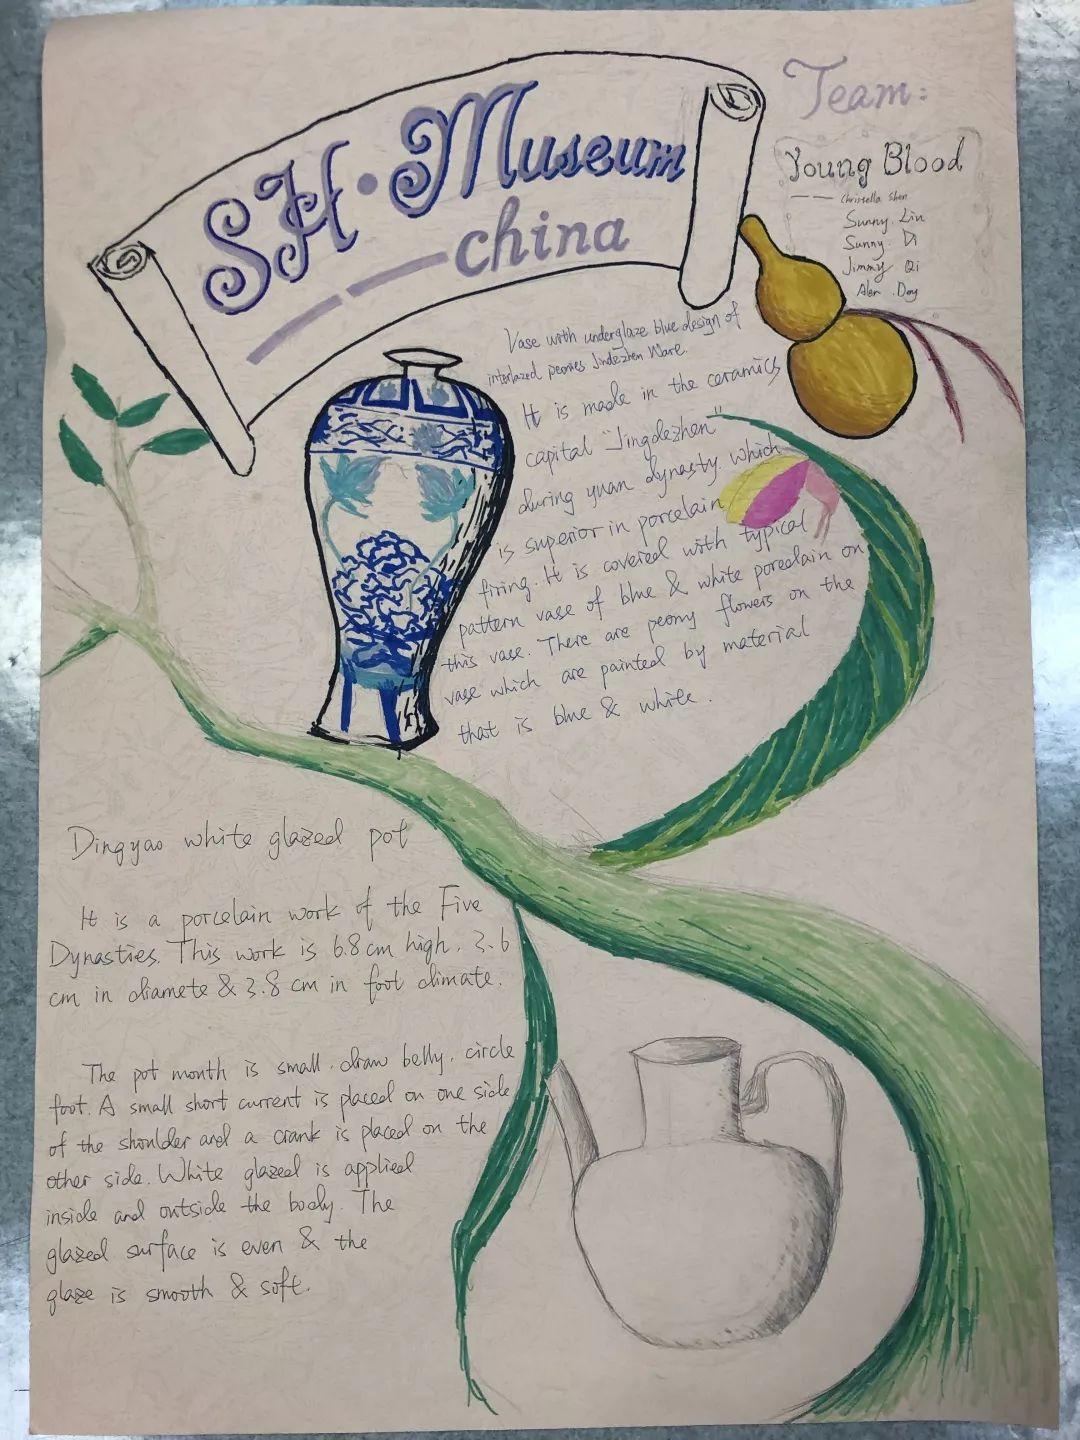 SH·Museum
——china
Team:
Young Blood
—— Christella Shen
Sunny. Lin
Sunny. Di
Jimmy Qi
Alen .Dey
Vase with underglaze blue design of
interlazed peonies Jindezhen Ware.
It is made in the ceramics
capital "Jingdezhen"
during yuan dynasty. which
is superior in porcelain
firing. It is covered with typical
pattern vase of blue & white porcelain on
this vase. There are peomy flowers on the
vase which are painted by material
that is blue & white.
Dingyao white glazed pot
It is a porcelain work of the Five
Dynasties. This work is 6.8 cm high. 3.6
cm in diamete & 3.8 cm in foot climate.
The pot month is small. draw belly. circle
foot. A small short current is placed on one side
of the shoulder and a crank is placed on the
other side. White glazed is applied
inside and outside the body. The
glazed surface is even & the
glaze is smooth & soft.